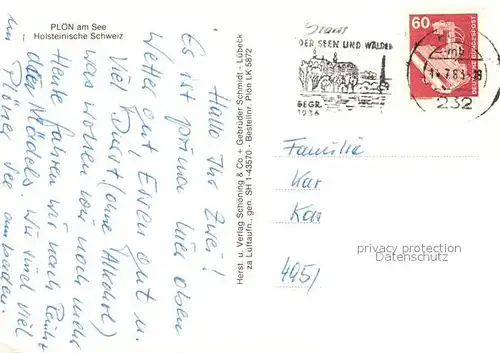 PLÖN am See
Holsteinische Schweiz
Hallo Ihr Zwei!
Es ist prima hier oben
Wetter gut, Essen gut u.
Viel Durst (ohne Alkohol)
was wollen wir noch mehr
Heute fahren wir nach
den Mädels. Wir sind viel
am Plöner See am baden.
Herst. u. Verlag Schöning & Co + Gebrüder Schmidt - Lübeck
za Luftaufn. gen. SH 1-43570 - Bestellnr. Plön LK 5872
DER SEEN UND WÄLDER
GEGR.
1236
60
DEUTSCHE BUNDESPOST
232
Familie
Kar
Kar
privacy protection
Datenschutz
495